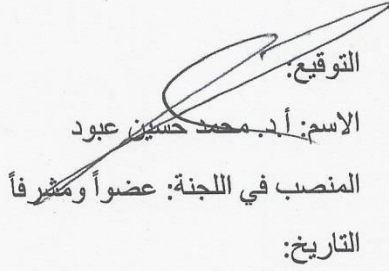 التوقيع:
الاسم: أ.د. محمد حسين عبود
المنصب في اللجنة: عضواً ومشرفاً
التاريخ: